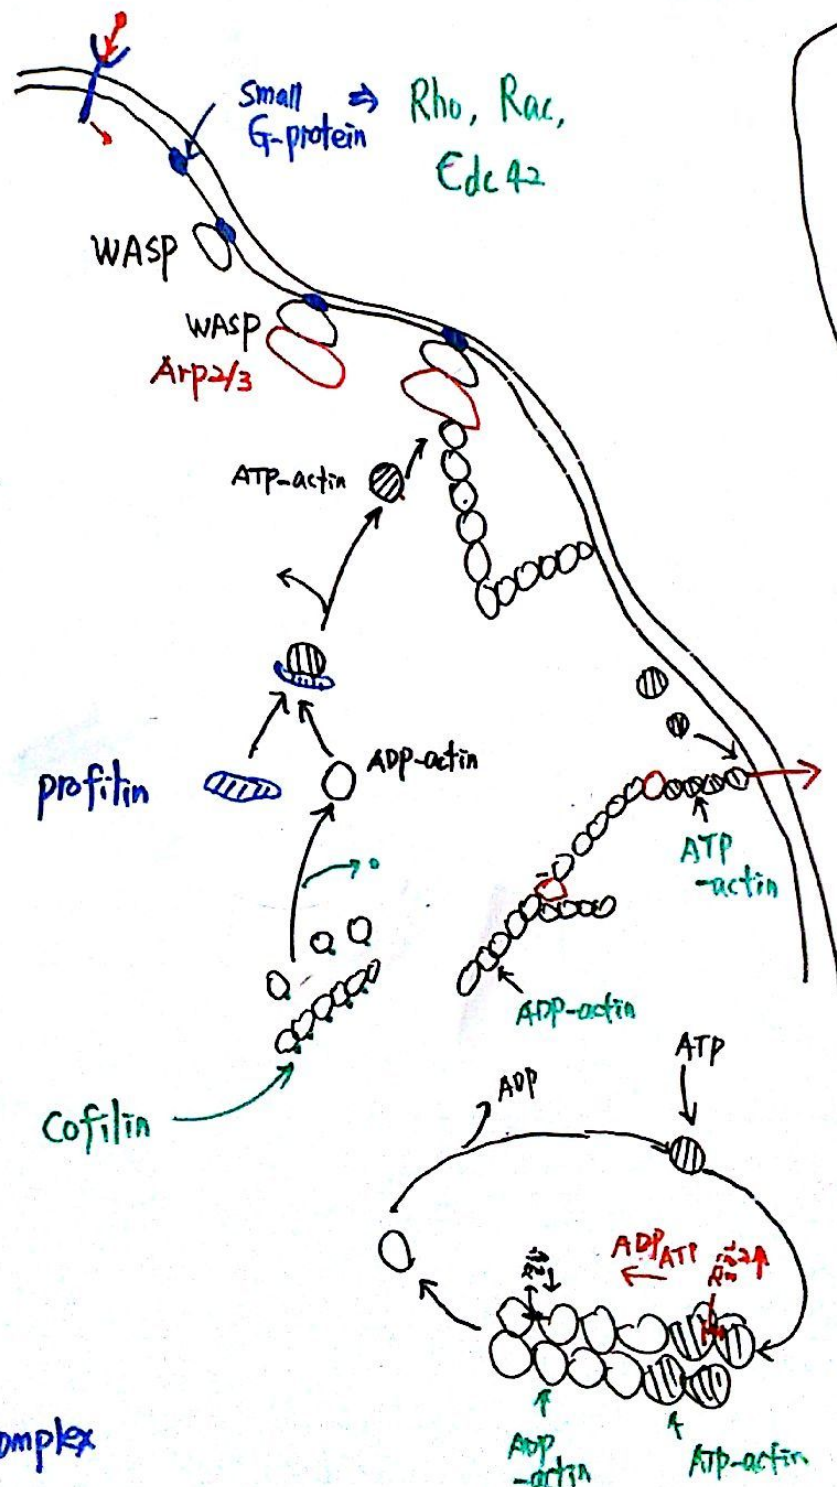 Small ⇒ Rho, Rac,
G-protein
Cdc42
WASP
WASP
Arp2/3
ATP-actin
profilin
ADP-actin
ATP
-actin
ADP-actin
Cofilin
ADP
ATP
ADP ATP
ADP
-actin
ATP-actin
omplex